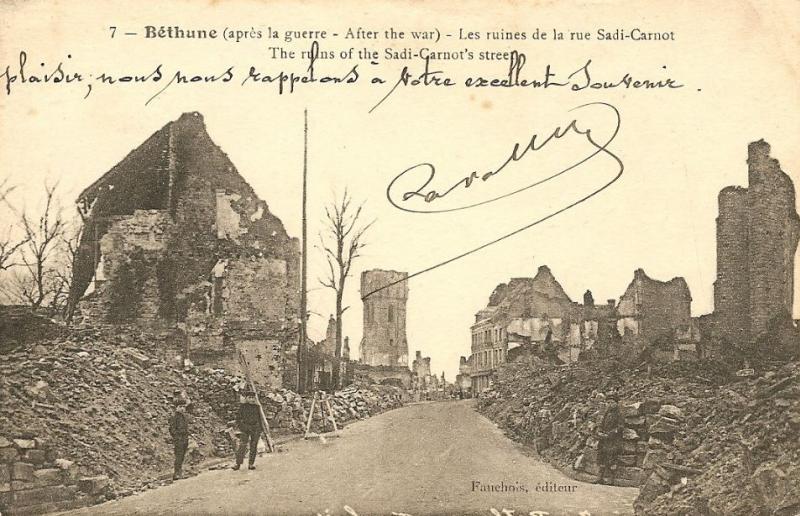 7 — Béthune (après la guerre - After the war) - Les ruines de la rue Sadi-Carnot
The ruins of the Sadi-Carnot's street
plaisir, nous nous rappelons à Votre excellent Souvenir.
Fauchois, éditeur